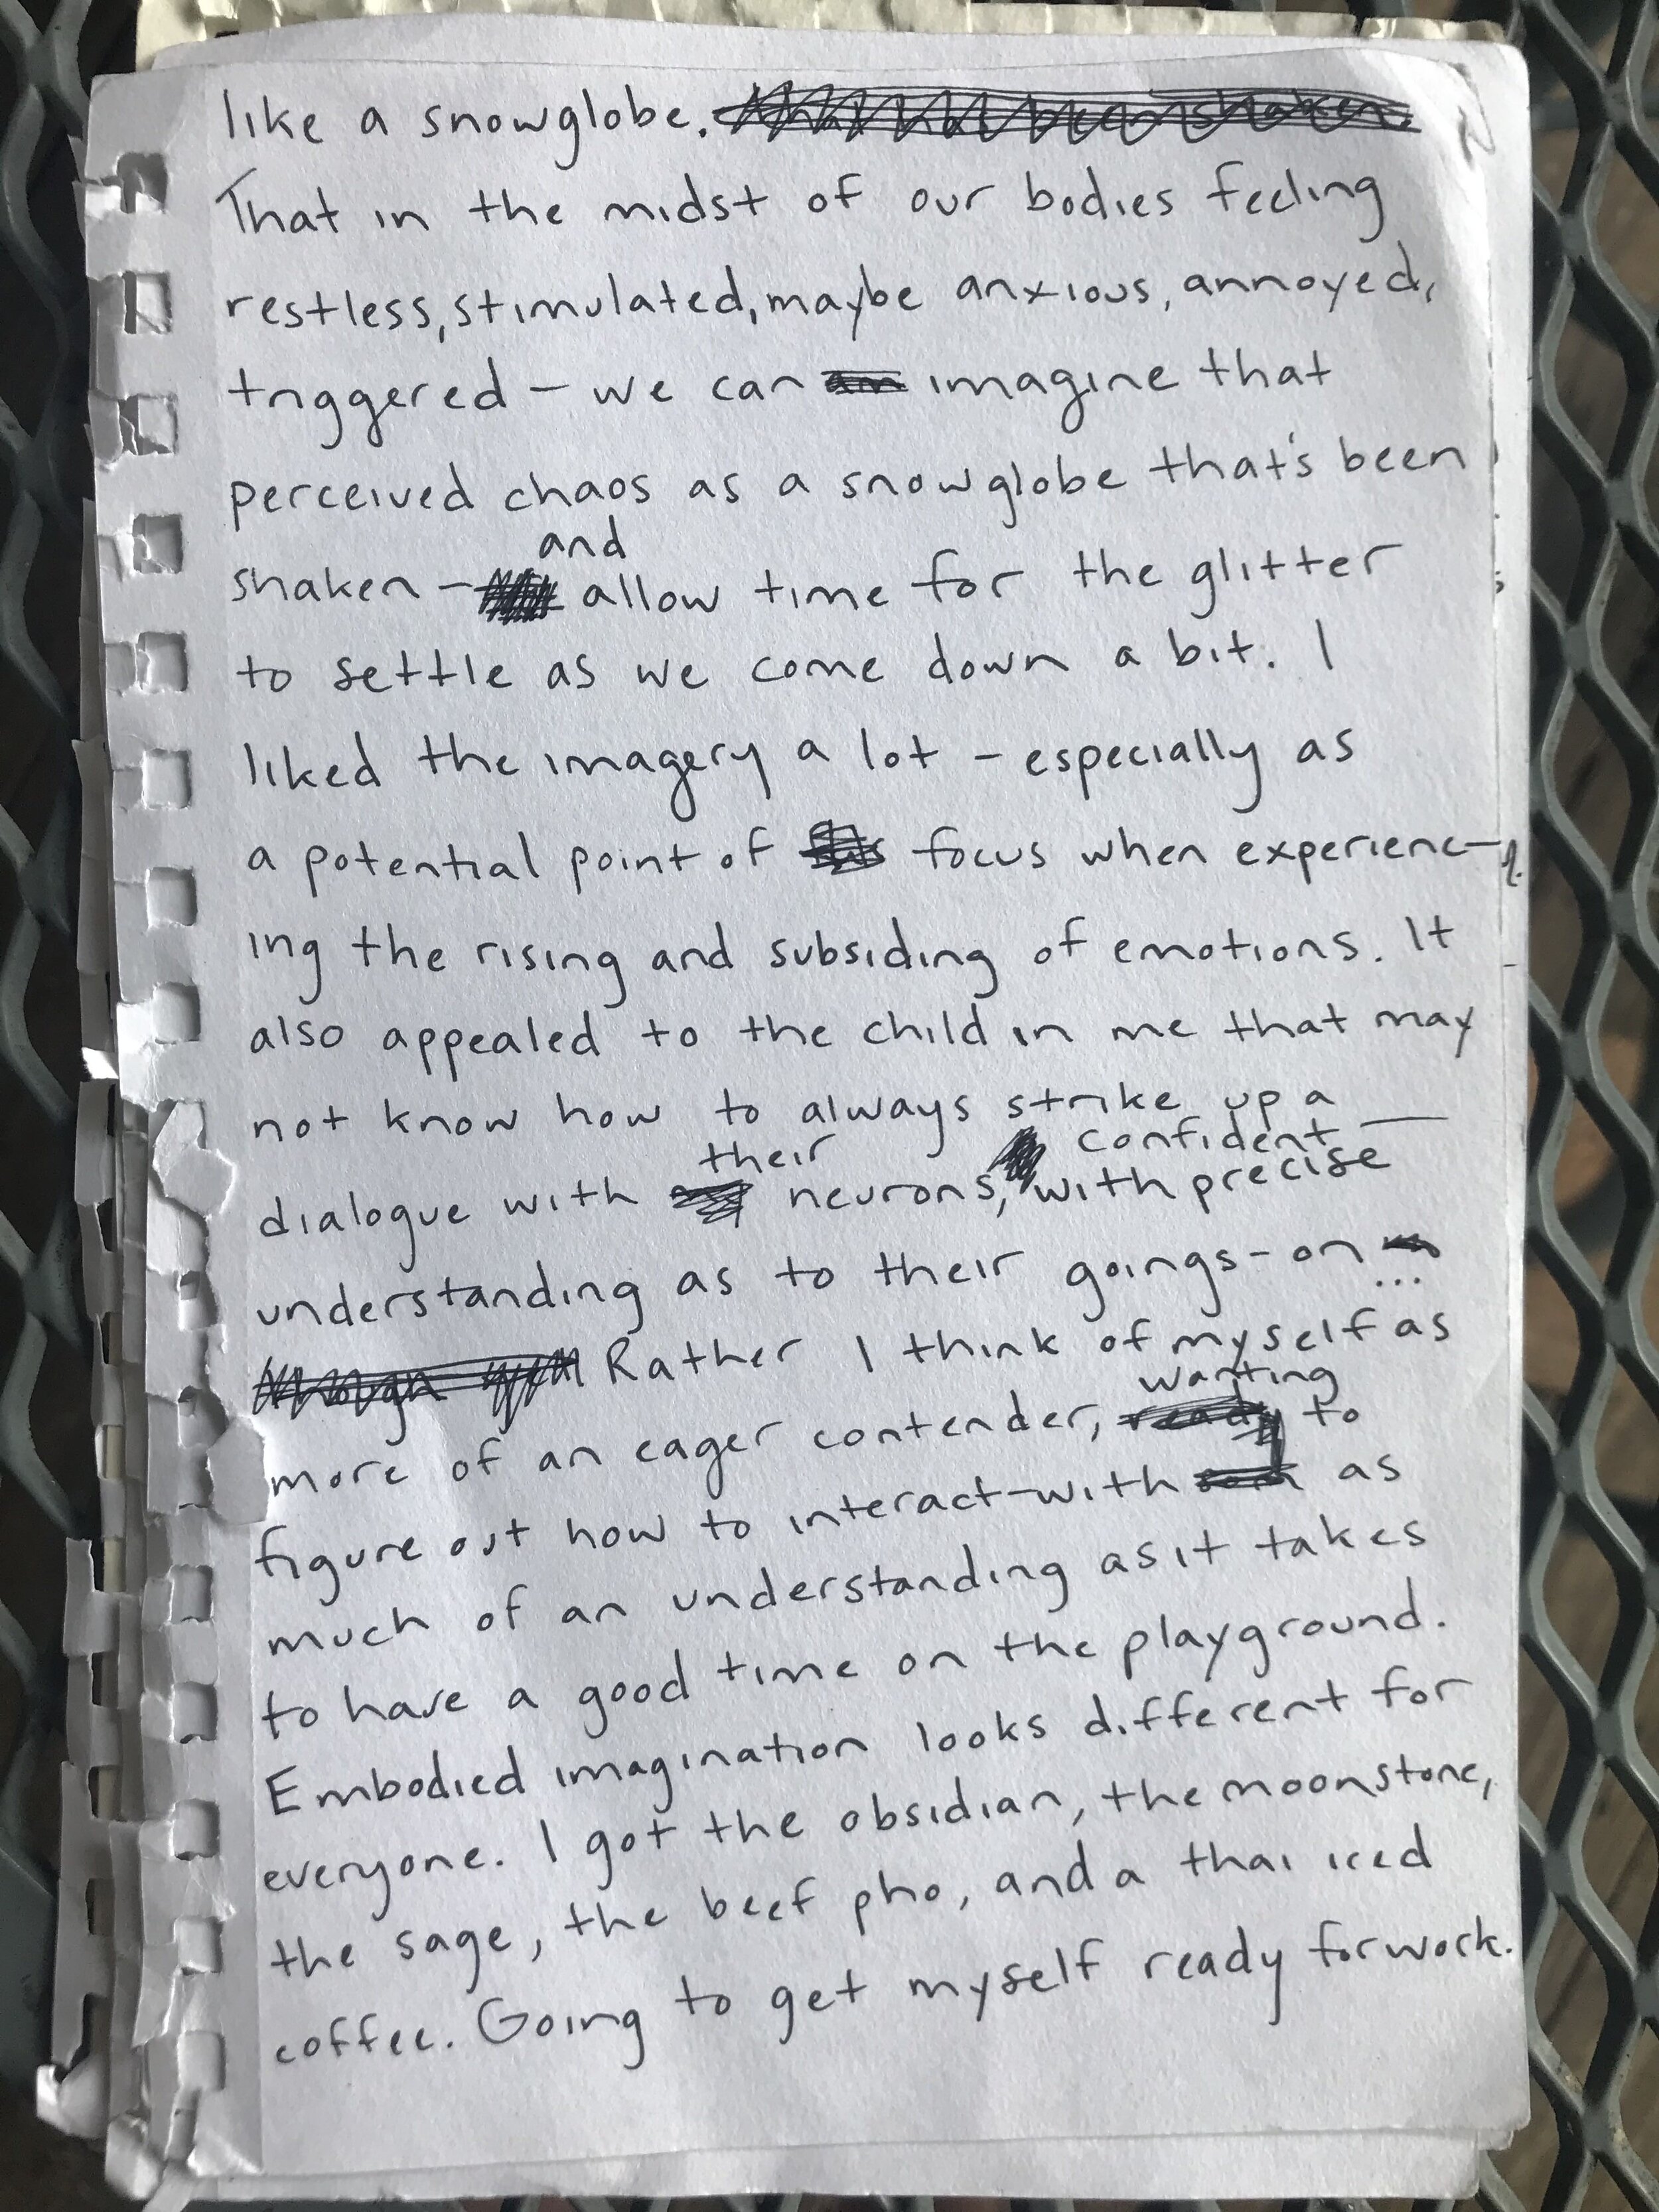 like a snowglobe.
That in the midst of our bodies feeling
restless, stimulated, maybe anxious, annoyed,
triggered – we can imagine that
perceived chaos as a snowglobe that's been
and
shaken – allow time for the glitter
to settle as we come down a bit. I
liked the imagery a lot – especially as
a potential point of focus when experienc-
ing the rising and subsiding of emotions. It
also appealed to the child in me that may
not know how to always strike up a
their confident
dialogue with neurons, with precise
understanding as to their goings-on...
Rather I think of myself as
wanting
more of an eager contender, to
figure out how to interact-with as
much of an understanding as it takes
to have a good time on the playground.
Embodied imagination looks different for
everyone. I got the obsidian, the moonstone,
the sage, the beef pho, and a thai iced
coffee. Going to get myself ready for work.